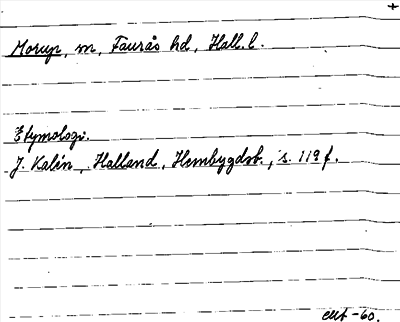 +
Morup, sn, Faurås hd, Hall. l.
Etymologi.
J. Kalén, Halland, Hembygdsb., s. 119 f.
-60.